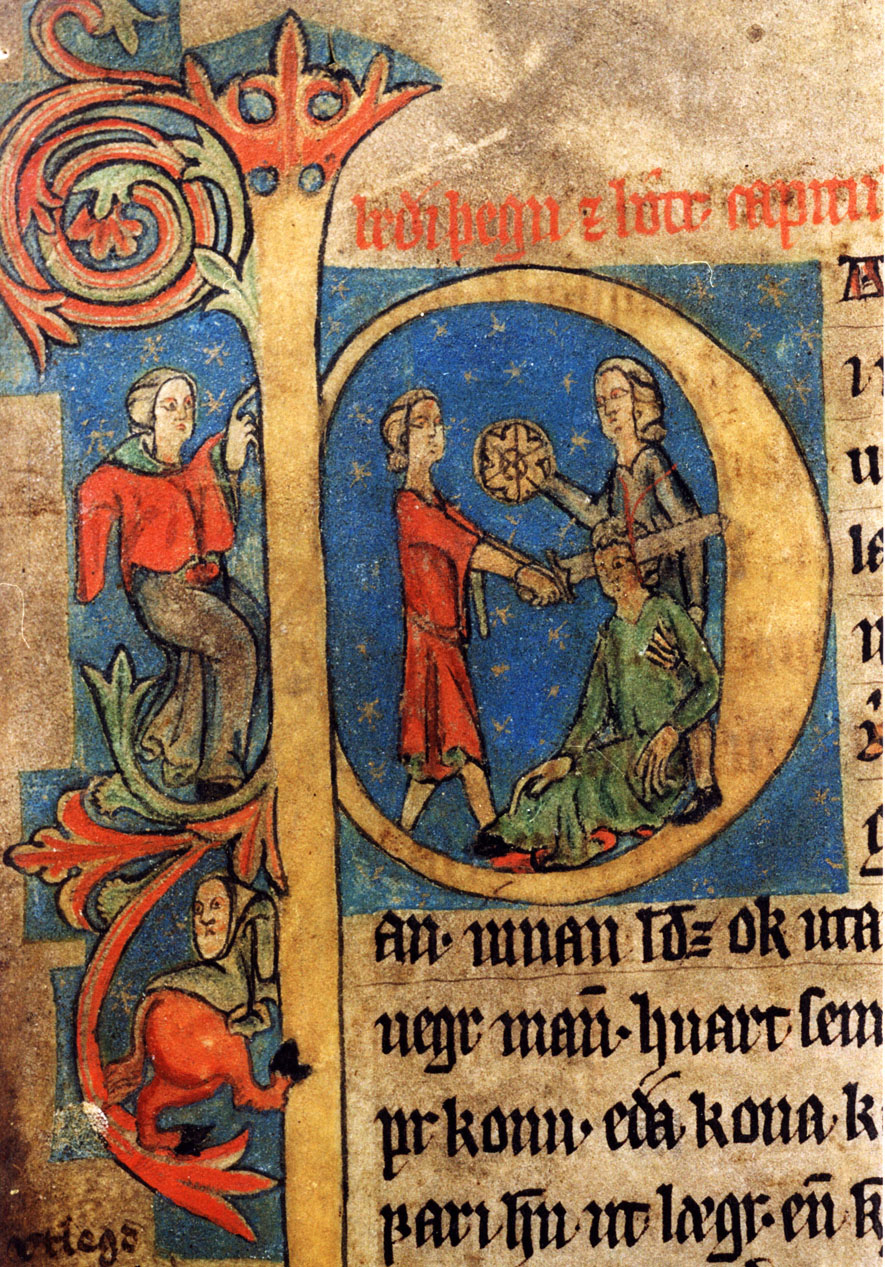 þegn ⁊ capitu
an. innan lđz ok uta
uegr man̄. huart sem
pr konu. eđa kona k
pari hn̄ ut lægr. en̄ k
vtlegd